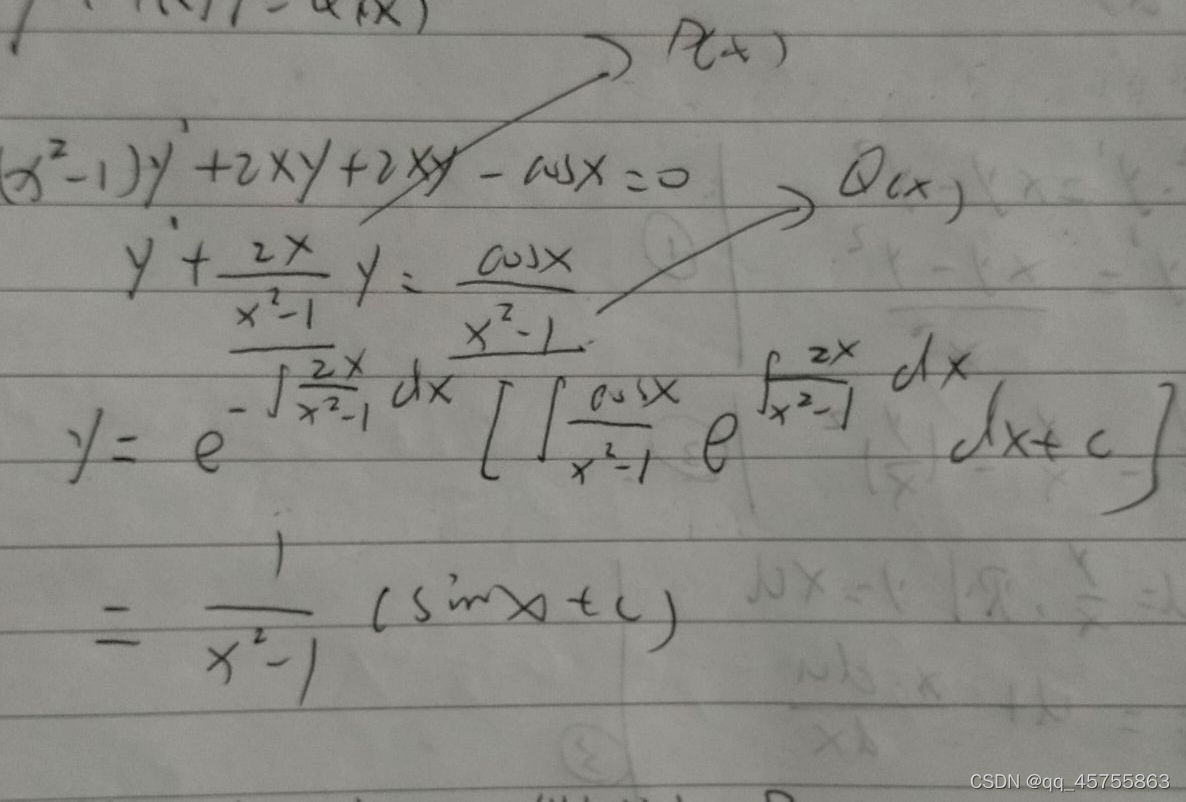 P(x)
(x²-1)y' + 2xy + 2xy - cosx = 0
Q(x)
y' + \frac{2x}{x²-1} y = \frac{cosx}{x²-1}
y = e^{-∫\frac{2x}{x²-1} dx} [ ∫\frac{cosx}{x²-1} e^{∫\frac{2x}{x²-1} dx} dx + c ]
= \frac{1}{x²-1} (sinx + c)
CSDN @qq_45755863